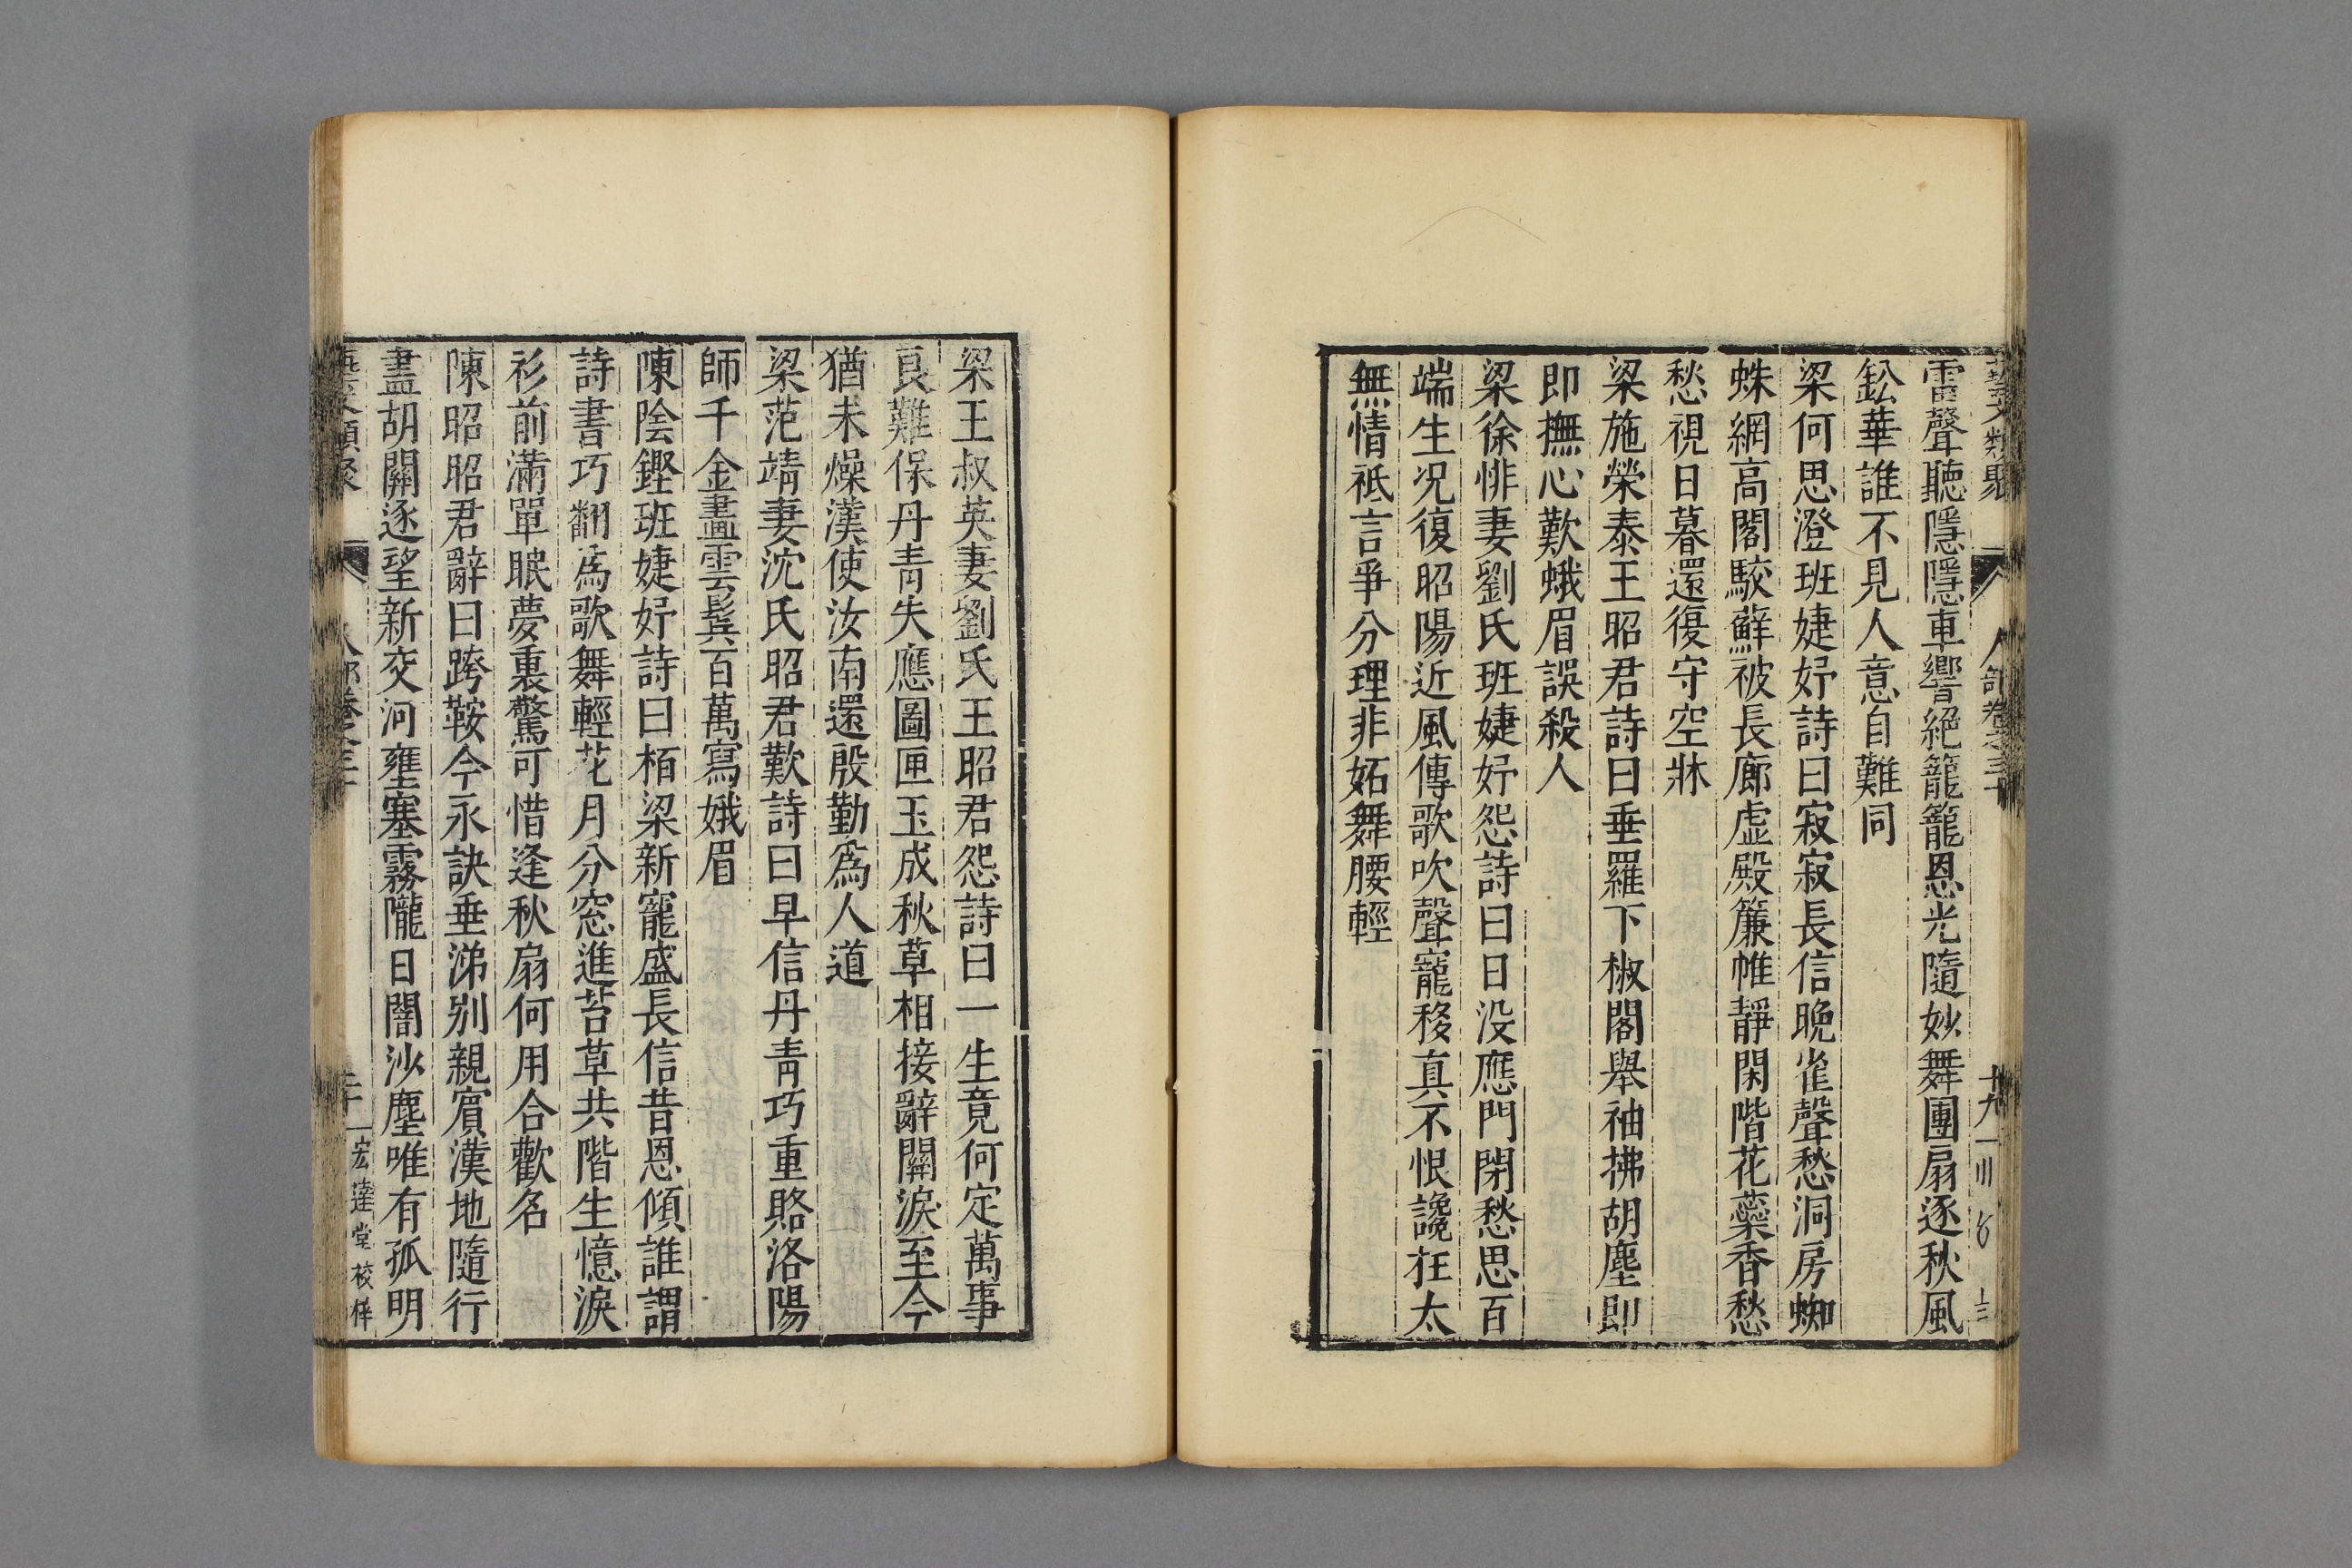 藝文類聚 人部卷三十 十九
雷聲聽隱隱車響絕籠籠恩光隨妙舞團扇逐秋風
鈆華誰不見人意自難同
梁何思澄班婕妤詩曰寂寂長信晚雀聲愁洞房蜘
蛛網高閣駮蘚被長廊虛殿簾帷靜閑階花蘂香愁
愁視日暮還復守空牀
梁施榮泰王昭君詩曰垂羅下椒閣舉袖拂胡塵即
即撫心歎蛾眉誤殺人
梁徐悱妻劉氏班婕妤怨詩曰日没應門閉愁思百
端生况復昭陽近風傳歌吹聲寵移真不恨讒枉太
無情祗言爭分理非妬舞腰輕
梁王叔英妻劉氏王昭君怨詩曰一生竟何定萬事
良難保丹青失應圖匣玉成秋草相接辭關淚至今
猶未燥漢使汝南還殷勤爲人道
梁范靖妻沈氏昭君歎詩曰早信丹青巧重賂洛陽
師千金畫雲鬂百萬寫娥眉
陳陰鏗班婕妤詩曰栢梁新寵盛長信昔恩傾誰謂
詩書巧翻爲歌舞輕花月分窓進苔草共階生憶淚
衫前滿單眠夢裏驚可惜逢秋扇何用合歡名
陳昭昭君辭曰跨鞍今永訣垂涕别親賓漢地隨行
盡胡關逐望新交河壅塞霧隴日闇沙塵唯有孤明
藝文類聚 人部卷三十 二十 宏達堂校梓